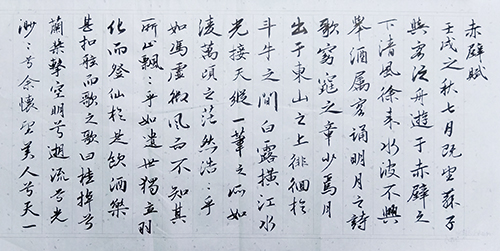 赤壁賦
壬戌之秋七月既望蘇子
與客泛舟遊于赤壁之
下清風徐来水波不興
舉酒属客誦明月之詩
歌窈窕之章少焉月
出于東山之上徘徊於
斗牛之間白露横江水
光接天縱一葦之所如
凌萬頃之茫然浩々乎
如馮虚御風而不知其
所止飄々乎如遺世獨立羽
化而登仙於是飲酒樂
甚扣舷而歌之歌曰桂棹兮
蘭槳擊空明兮遡流兮光
渺々兮余懷望美人兮天一